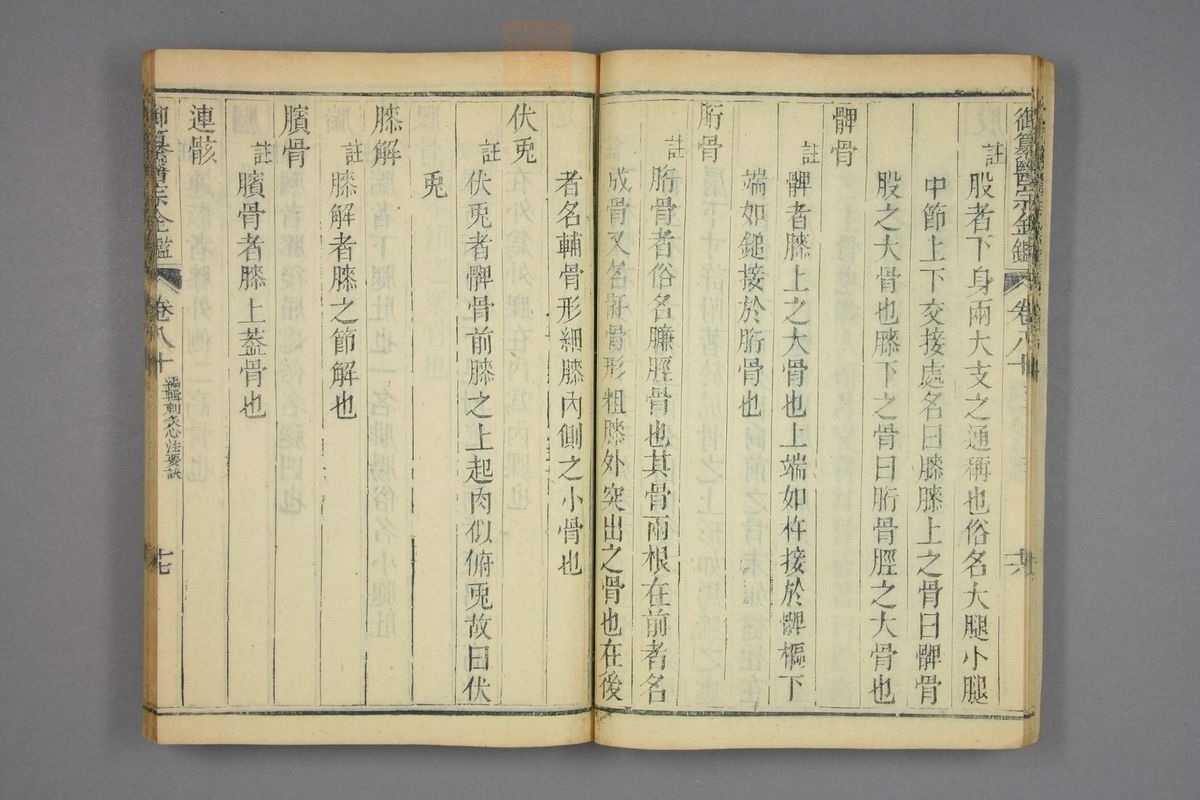 御纂醫宗金鑑 卷八十
註股者下身兩大支之通稱也俗名大腿小腿
中節上下交接處名曰膝膝上之骨曰髀骨
股之大骨也膝下之骨曰胻骨脛之大骨也
髀骨
註髀者膝上之大骨也上端如杵接於髀樞下
端如鎚接於胻骨也
胻骨
註胻骨者俗名臁脛骨也其骨兩根在前者名
成骨又名骭骨形粗膝外突出之骨也在後
者名輔骨形細膝內側之小骨也
伏兎
註伏兎者髀骨前膝之上起肉似俯兎故曰伏
兎
膝解
註膝解者膝之節解也
臏骨
註臏骨者膝上蓋骨也
連骸
御纂醫宗金鑑 卷八十 編輯刺灸心法要訣 七